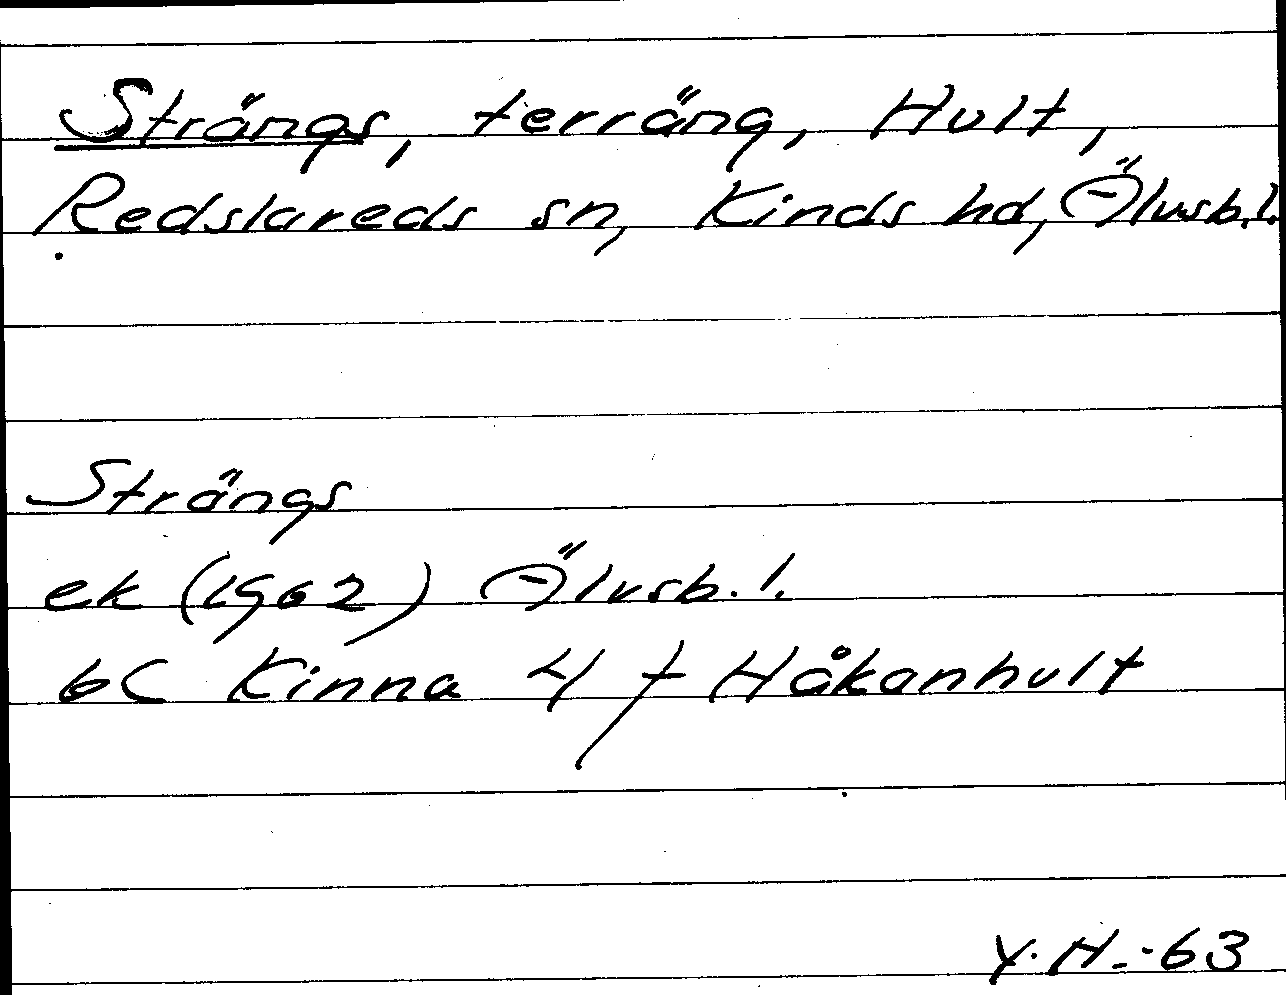 Strängs, terräng, Hult,
Redslareds sn, Kinds hd, Älvsb.l.
Strängs
ek (1962) Älvsb.l.
6C Kinna 4 f Håkanhult
Y.H.-63